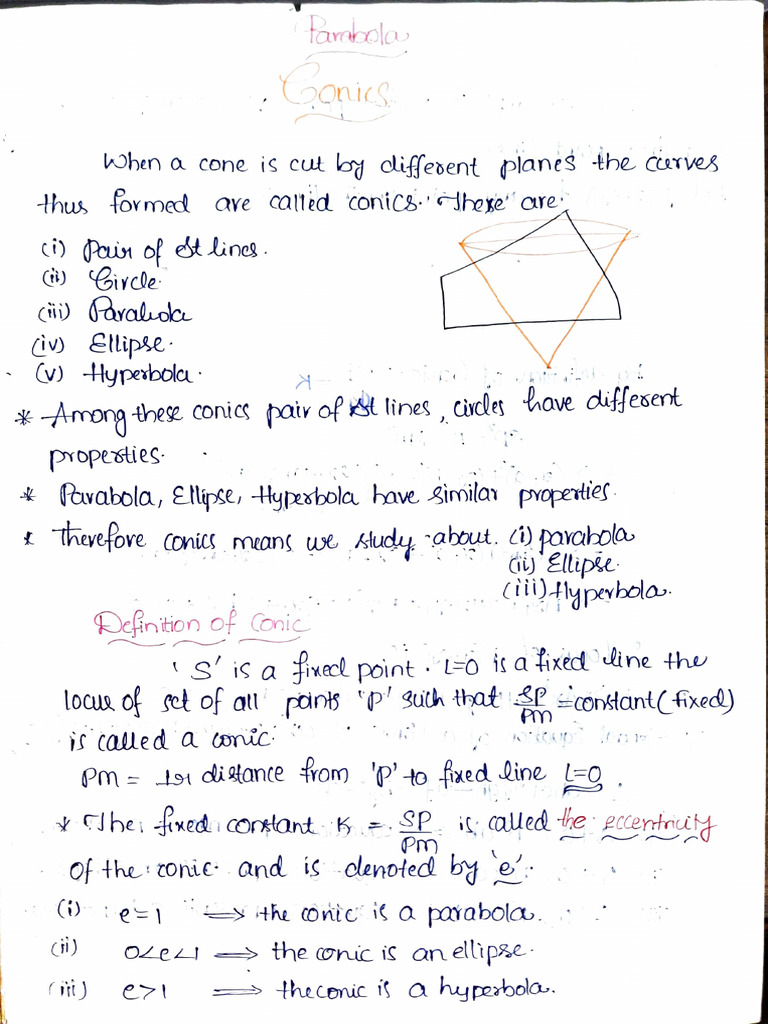 Parabola
Conics
When a cone is cut by different planes the curves
thus formed are called conics. "These" are.
(i) Pair of St lines.
(ii) Circle.
(iii) Parabola
(iv) Ellipse.
(v) Hyperbola.
* Among these conics pair of St lines, circles have different
properties.
* Parabola, Ellipse, Hyperbola have similar properties.
* therefore conics means we study about. (i) parabola
(ii) Ellipse.
(iii) Hyperbola.
Definition of Conic
'S' is a fixed point. L=0 is a fixed line the
locus of set of all points 'p' such that SP/PM = constant (fixed)
is called a conic.
PM = ⊥er distance from 'p' to fixed line L=0.
* The fixed constant K = SP/PM is called the eccentricity
of the conic and is denoted by 'e'.
(i) e=1 ⟹ the conic is a parabola.
(ii) 0<e<1 ⟹ the conic is an ellipse.
(iii) e>1 ⟹ the conic is a hyperbola.